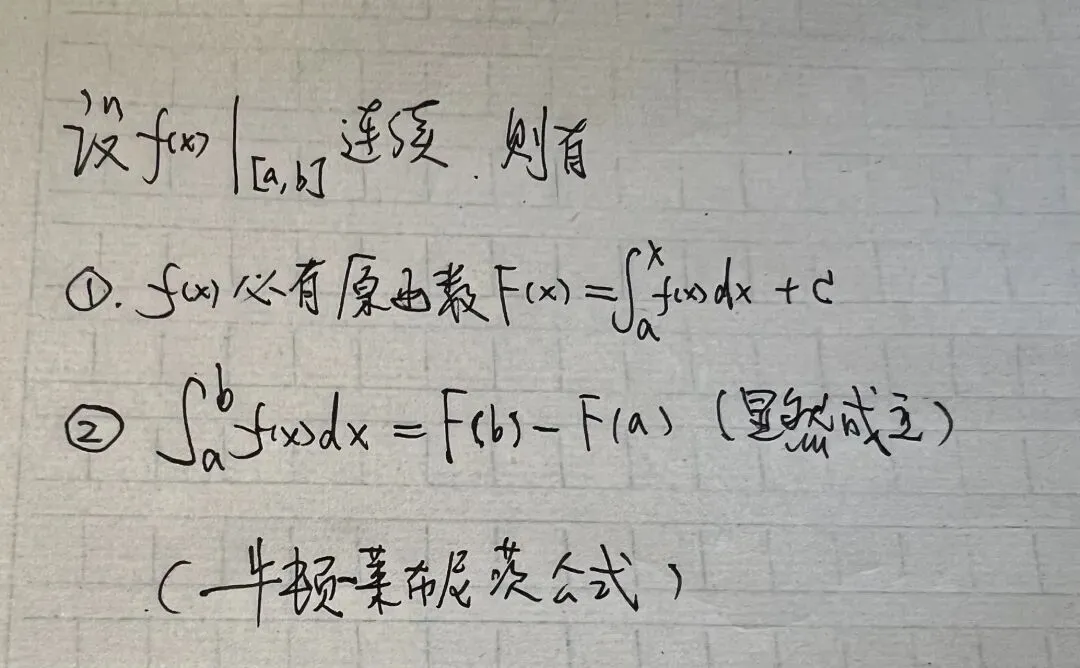 设 f(x)|[a,b] 连续. 则有
①. f(x) 必有原函数 F(x) = ∫ₐˣ f(x)dx + C
② ∫ₐᵇ f(x)dx = F(b) - F(a) (显然成立)
(牛顿-莱布尼茨公式)